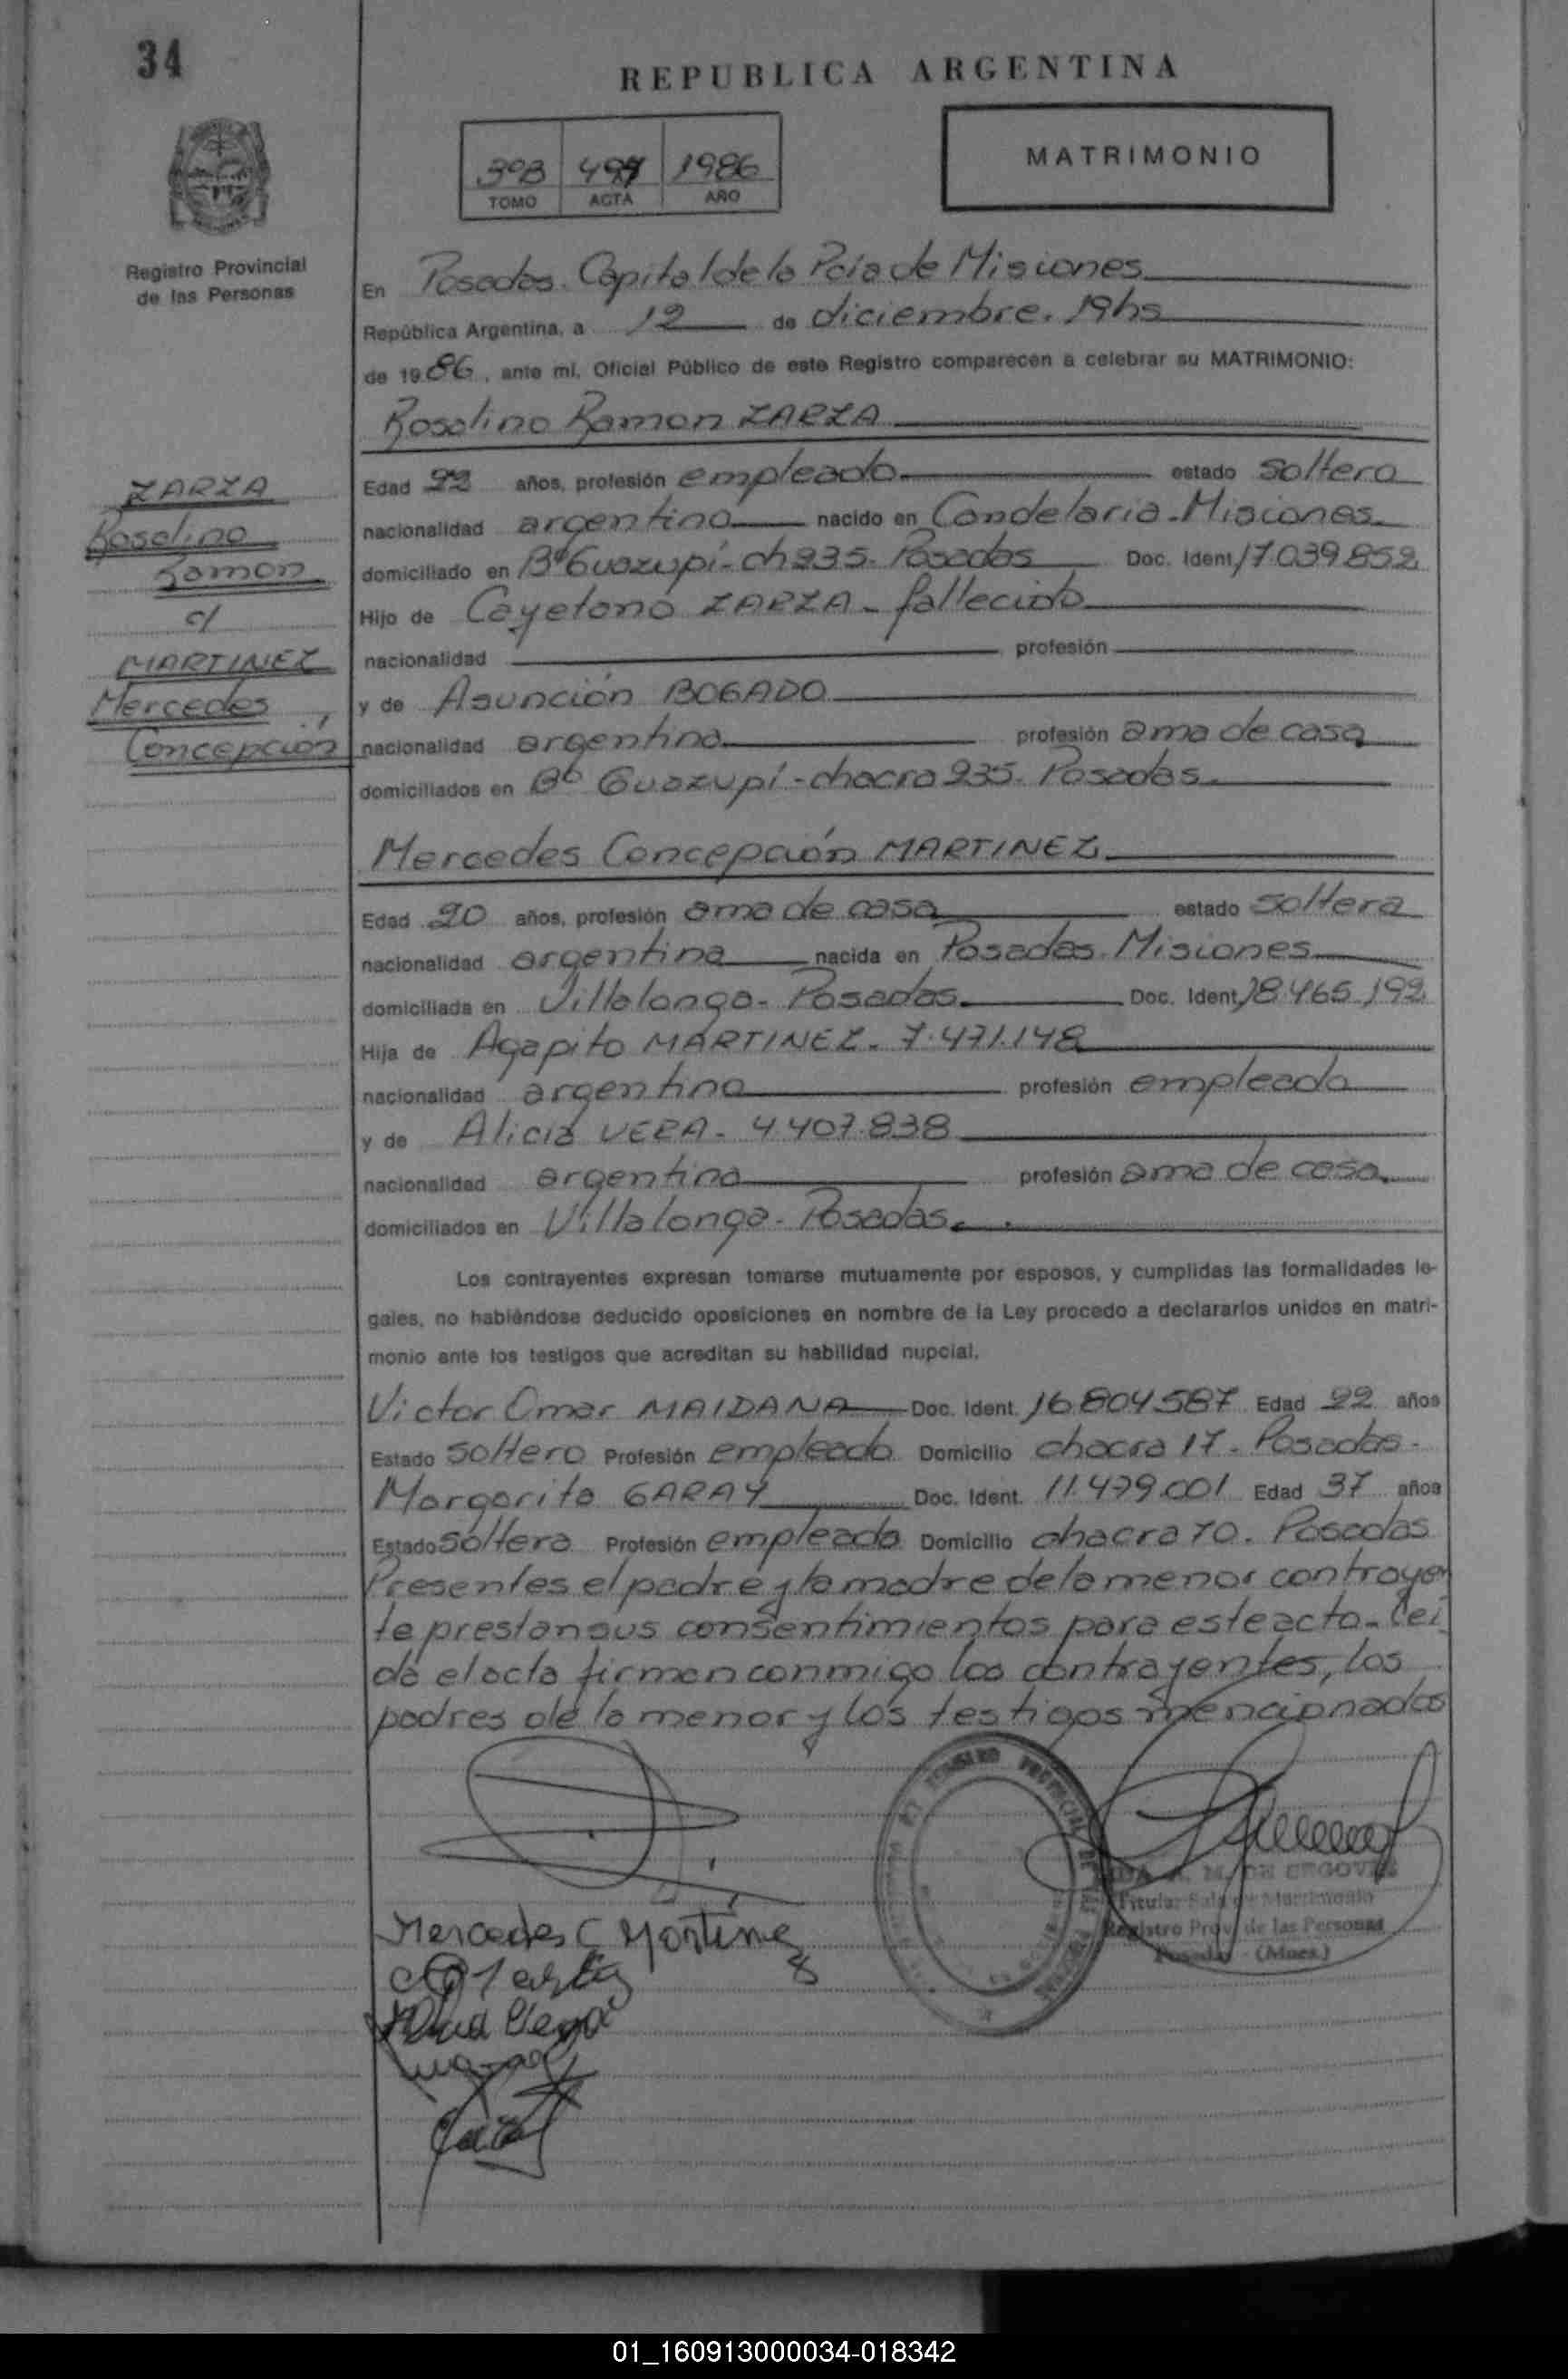 34
REPUBLICA ARGENTINA
3ºB 497 1986
TOMO ACTA AÑO
MATRIMONIO
Registro Provincial
de las Personas
En Posadas. Capital de la Pcia de Misiones
República Argentina, a 12 de diciembre. 19hs
de 1986, ante mi, Oficial Público de este Registro comparecen a celebrar su MATRIMONIO:
Rosalino Ramon ZARZA
ZARZA
Rosalino
Ramon
c/
MARTINEZ
Mercedes
Concepción
Edad 22 años, profesión empleado estado soltero
nacionalidad argentino nacido en Candelaria-Misiones
domiciliado en Bº Guazupí-ch 235. Posadas Doc. Ident 17.039.852
Hijo de Cayetano ZARZA - fallecido
nacionalidad profesión
y de Asunción BOGADO
nacionalidad argentina profesión ama de casa
domiciliados en Bº Guazupí-chacra 235. Posadas.
Mercedes Concepción MARTINEZ
Edad 20 años, profesión ama de casa estado soltera
nacionalidad argentina nacida en Posadas. Misiones
domiciliada en Villalonga- Posadas. Doc. Ident 18.465.192
Hija de Agapito MARTINEZ. 7.471.148
nacionalidad argentino profesión empleado
y de Alicia VERA- 4.407.838
nacionalidad argentina profesión ama de casa.
domiciliados en Villalonga- Posadas.
Los contrayentes expresan tomarse mutuamente por esposos, y cumplidas las formalidades le-
gales, no habiéndose deducido oposiciones en nombre de la Ley procedo a declararlos unidos en matri-
monio ante los testigos que acreditan su habilidad nupcial.
Victor Omar MAIDANA Doc. Ident. 16.804.587 Edad 22 años
Estado soltero Profesión empleado Domicilio chacra 17- Posadas-
Margarita GARAY Doc. Ident. 11.479.001 Edad 37 años
Estado soltera Profesión empleada Domicilio chacra 70. Posadas
Presentes el padre y la madre de la menor contrayen
te prestan sus consentimientos para este acto. Leí
da el acta firman conmigo los contrayentes, los
padres de la menor y los testigos mencionados
Mercedes C Martinez
M. DE SEGOVIA
Titular Sala de Matrimonio
Registro Prov. de las Personas
Posadas - (Mnes.)
01_160913000034-018342